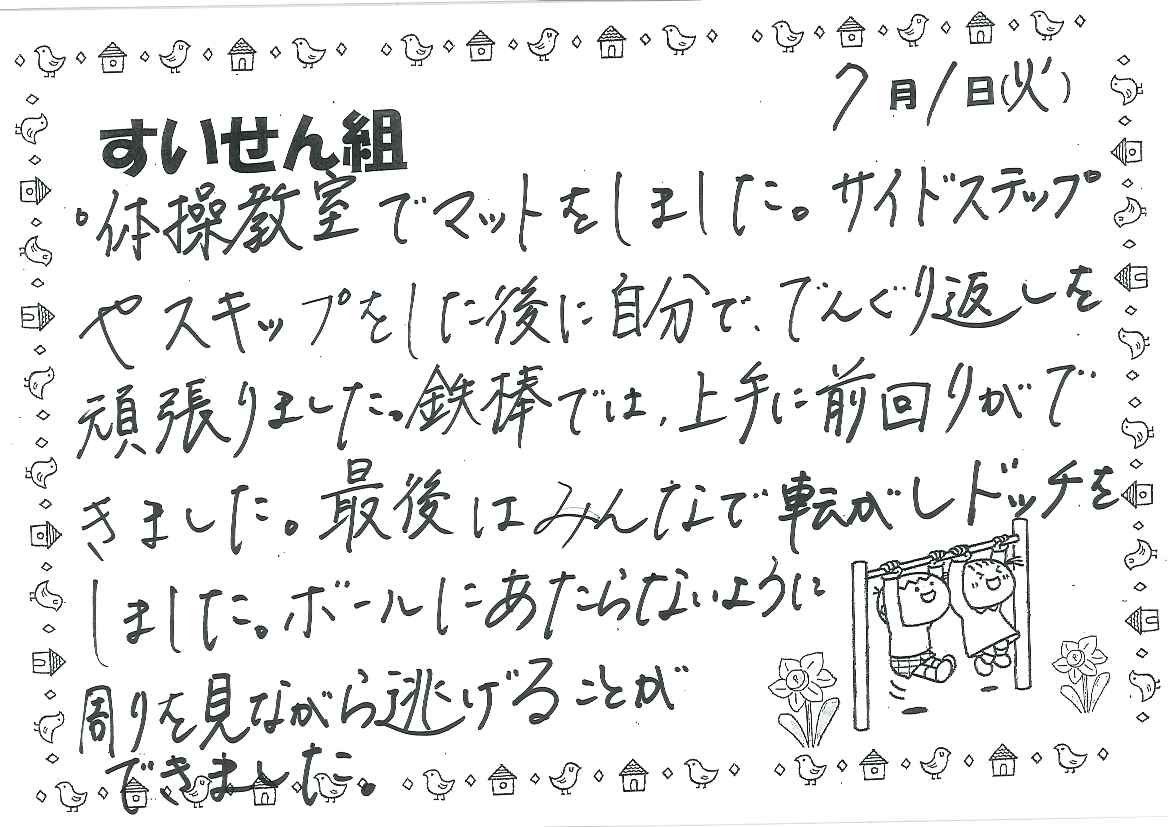 7月1日(火)
すいせん組
°体操教室でマットをしました。サイドステップ
やスキップをした後に自分で、でんぐり返しを
頑張りました。鉄棒では、上手に前回りがで
きました。最後はみんなで転がしドッチを
しました。ボールにあたらないように
周りを見ながら逃げることが
できました。